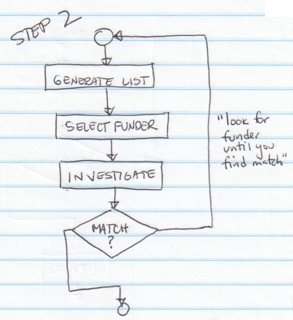 STEP 2
GENERATE LIST
SELECT FUNDER
INVESTIGATE
"look for
funder
until you
find match"
MATCH
?